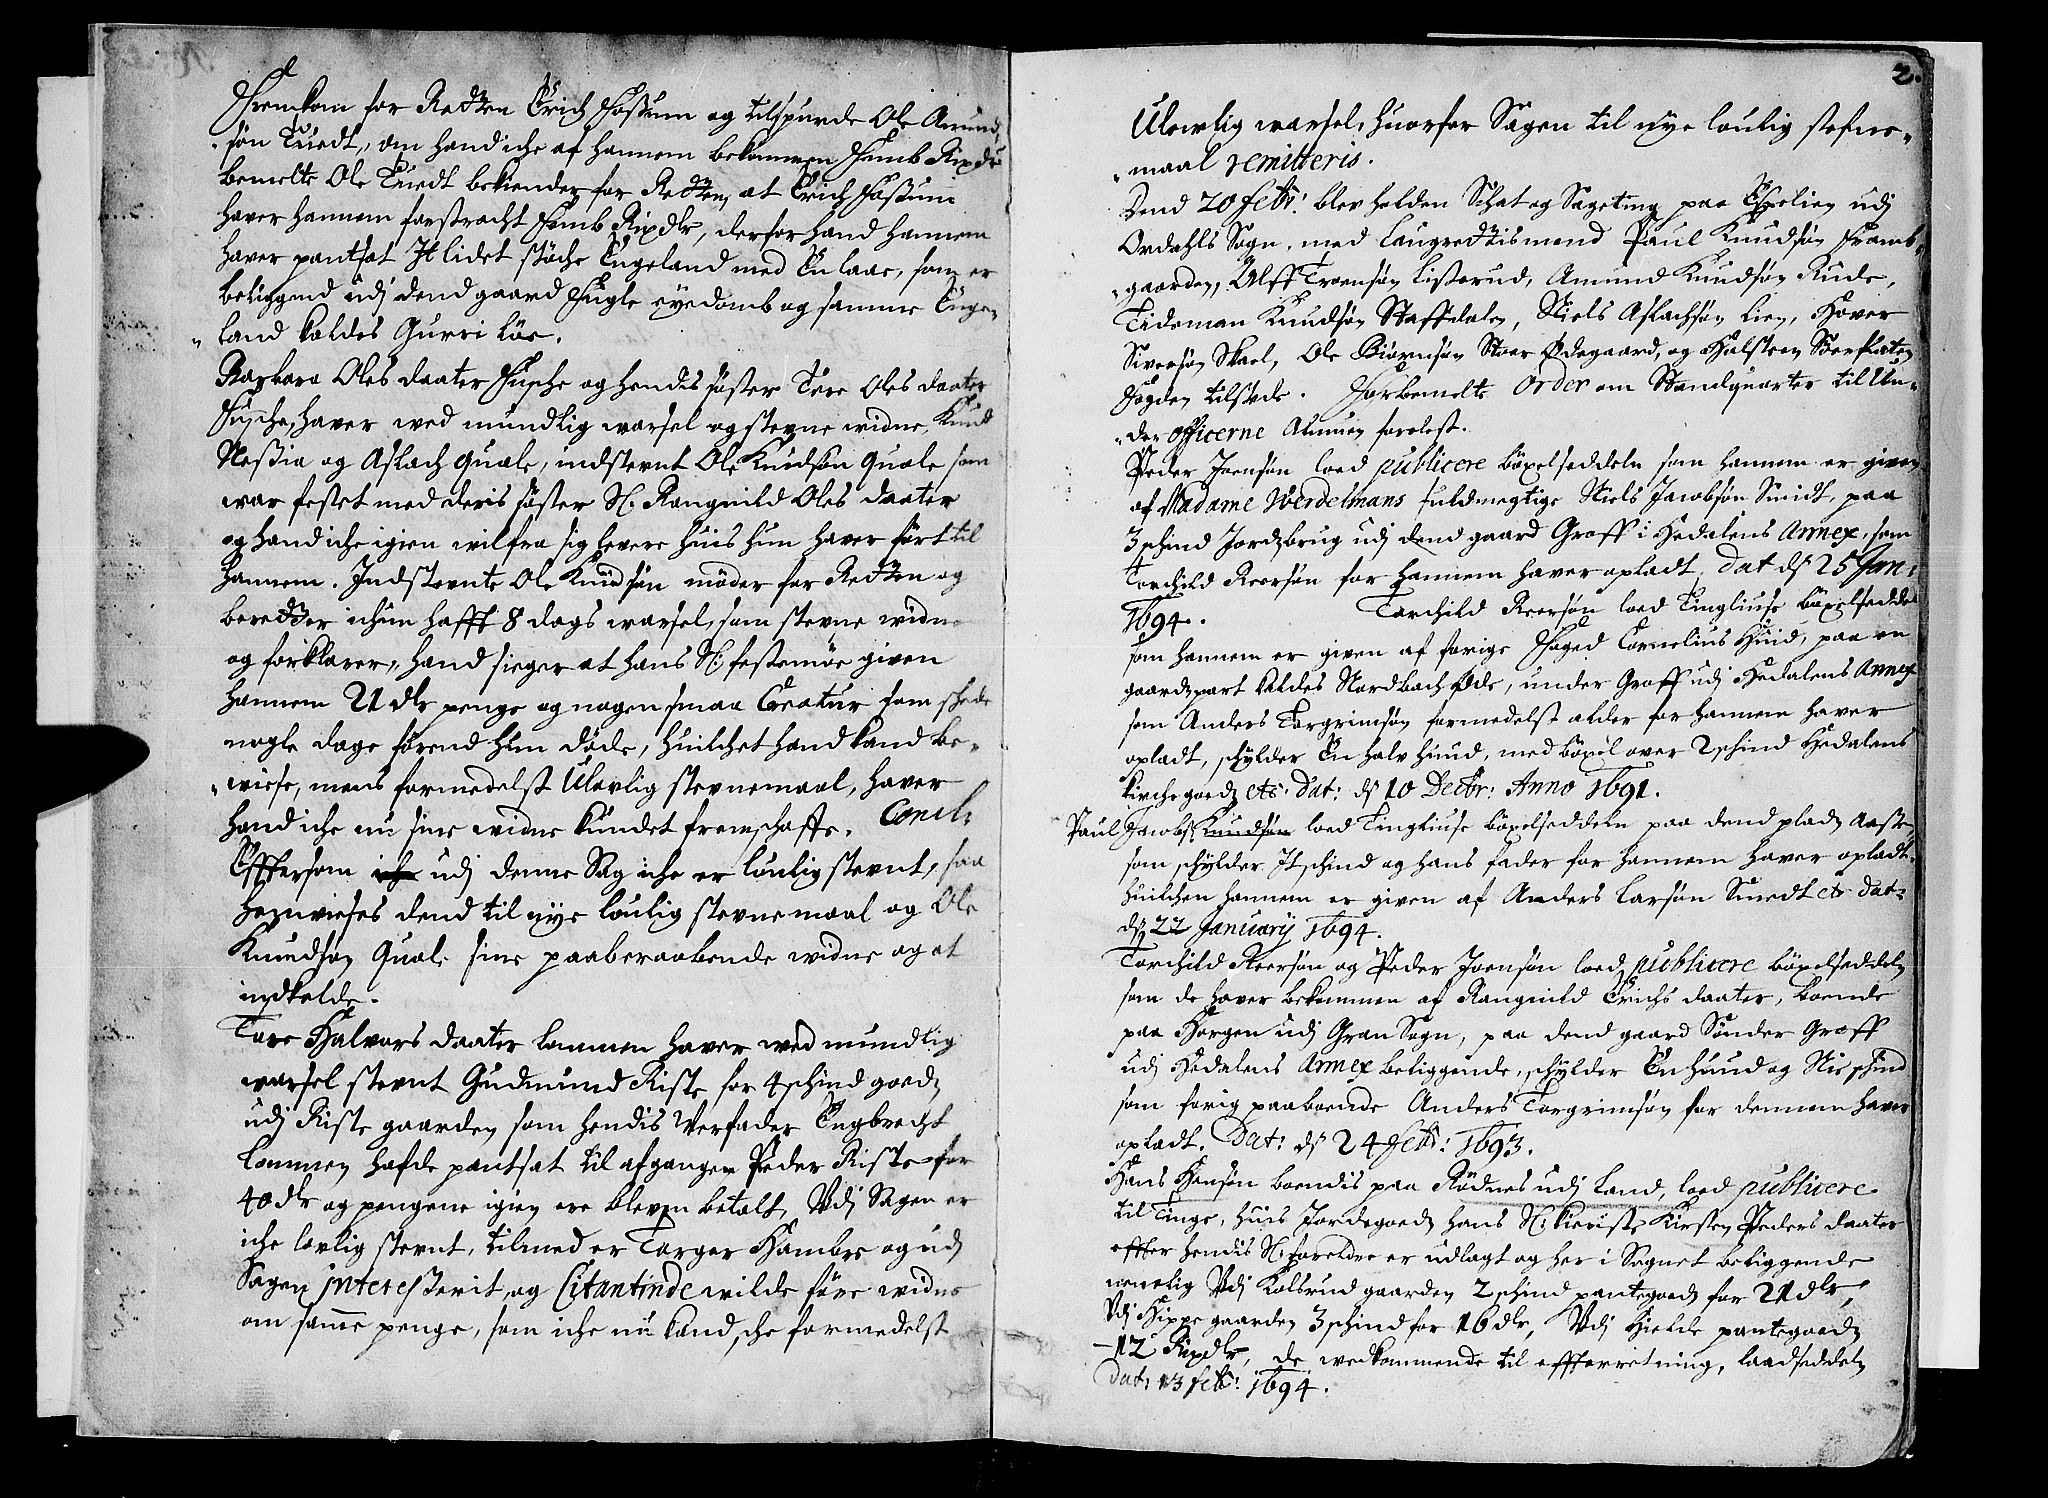 Fremkom for Retten Erich Fossum og tilspurde Ole Amund-
"søn Tuedt, om hand iche af hannem bekommen Femb Rixdr
bemelte Ole Tuedt bekiender for Retten, at Erich Fossum
haver hannem forstracht Femb Rixdlr, derfor hand hannem
haver pantsat It lidet støche Engeland med En laae, som er
beliggend udj dend gaard Fugle eyedomb og samme Enge-
"land kaldes Gurri Løe.
Barbara Oles daater Fusche og hendis søster Tore Oles daater
Fusche, haver wed mundlig warsel og stevne widne, Knud
Nessia og Aslach Quale, indstevnt Ole Knudsøn Quale som
war festet med deris søster Sl: Rangnild Oles daater
og hand iche igien wil fra sig levere huis hun haver ført til
hannem. Indstevnte Ole Knudsøn møder for Retten og
beretter ichun hafft 8 dags warsel, som stevne widne
og forklarer, hand sieger at hans Sl: festemøe given
hannem 21 dlr penge og nogen smaa Creatur som skede
nogle dage førend hun døde, huilchet hand kand be-
"wiese, mens formedelst Ulovlig stevnemaal, haver
hand iche nu sine widne kundet fremschaffe. Concl:
Effersom udj denne Sag iche er loulig stevnt, saa
henwieses dend til nye loulig stevnemaal og Ole
Knudsøn Quale sine paaberaabende widne og at
indkalde.
Tore Halvors daater Lommen haver wed mundlig
warsel stevnt Gudmund Riste for 4 schind goeds
udj Riste gaarden som hendis Verfader Engbrecht
Lommen hafde pantsat til afgangen Peder Riste for
40 dlr og pengene igien ere bleven betalt, Udj Sagen er
iche lovlig stevnt, tilmed er Torger Hambre og udj
Sagen interesserit, og Citantinde wilde føre widne
om samme penge, som iche nu kand sche formedelst
2.
Ulovlig warsel, huorfor Sagen til nye loulig stefne-
"maal remitteris.
Dend 20 febr: blev holden Schat og Sageting paa Espelien udj
Ordahls Sogn, med Laugrettismend Paul Knudsøn Framb-
"gaarden, Ulff Troensøn Listerud, Amund Knudsøn Rude,
Tideman Knudsøn Staffdalen, Niels Aslachsøn Lien, Haver
Siversøn Skael, Ole Biørnsøn Stoer Ødegaard, og Halsteen Sørflaten
Fogden tilstede. Forbemelte Order om Standquarter til Un-
"der Officerne Almuen forelæst.
Peder Joensøn loed publicere böxelseddeln som hannem er given
af Madame Werdelmans fuldmegtige Niels Jacobsøn Smidt, paa
3 schind Jordsbrug udj dend gaard Groff i Hedalens Annex, som
Torchild Reersøn for hannem haver opladt, dat ds 25 Jan:
1694. Torchild Reersøn loed Tingliuse böxelseddel
som hannem er given af forige Foged Cornelius Huid, paa en
gaards part kaldes Nordbach Øde, under Groff udj Hedalens Annex
som Anders Torgrimsøn formedelst alder for hannem haver
opladt, schylder En halv huud, med böxel over 2 schind Hedalens
kirche goeds etc: Dat: ds 10 Decbr: Anno 1691.
Paul Jacobs: Knudsøn loed Tingliuse böxelseddeln paa dend plads Aaste,
som schylder It schind og hans fader for hannem haver opladt,
huilchen hannem er given af Anders Larsøn Smedt etc dat:
ds 22 January 1694.
Torchild Reersøn og Peder Joensøn loed publicere böxelseddeln
som de haver bekommen af Rangnild Erichs daater, boende
paa Horgen udj Gran Sogn, paa dend gaard Sønder Groff
udj Hedalens Annex beliggende, schylder En huud og Nie schind
som forig paaboende Anders Torgrimsøn for dennem haver
opladt. Dat: ds 24 febr: 1693.
Hans Hansøn boendis paa Rødnes udj Land, loed publicere
til Tinge, huis Jordegoeds hans Sl: kieriste Kirsten Peders daater
effter hendis Sl: foreldre er udlagt og her i Sognet beliggende
nemelig Udj Kolsrud gaarden 2 schind pantegoeds for 21 dlr,
Udj Hippe gaarden 3 schind for 16 dlr, Udj Hielde pantegoeds
-12 Rixdlr, de wedkommende til effterretning, laadseddeln
Dat: 13 febr: 1694.